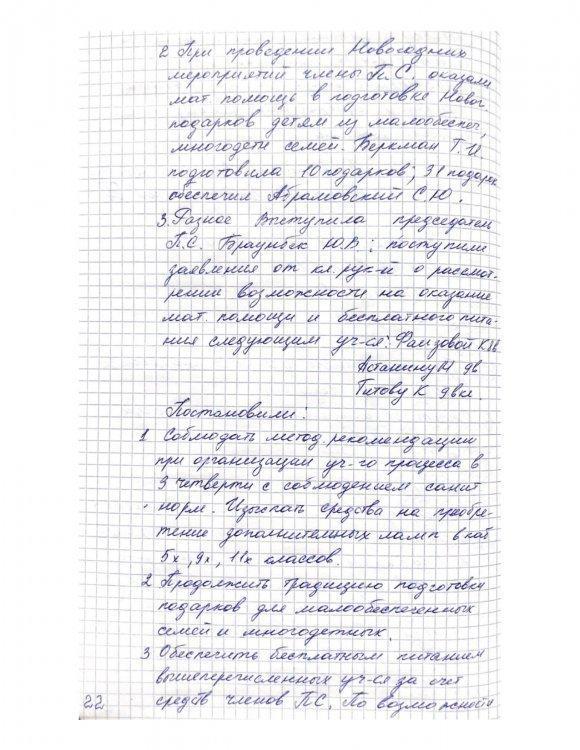 2 При проведении Новогодних
мероприятий члены П.С. оказали
мат. помощь в подготовке Новог
подарков детям из малообеспеч,
многодетн семей. Беркман Т.И.
подготовила 10 подарков; 31 подарок
обеспечил Абрамовский С.Ю.
3. Разное Выступила председатель
П.С. Браунбек Ю.В: поступили
заявления от кл. рук-й о рассмот-
рении возможности на оказание
мат. помощи и бесплатного пита-
ния следующим уч-ся: Фаизовой К
Астанину М 9в
Титову К 9в кл.
Постановили:
1 Соблюдать метод. рекомендации
при организации уч-го процесса в
3 четверти с соблюдением санит
норм. Изыскать средства на приобре-
тение дополнительных ламп в каб
5х, 9х, 11х классов.
2 Продолжить традицию подготовки
подарков для малообеспеченных
семей и многодетных.
3 Обеспечить бесплатным питанием
вышеперечисленных уч-ся за счет
средств членов ПС. По возможности
22